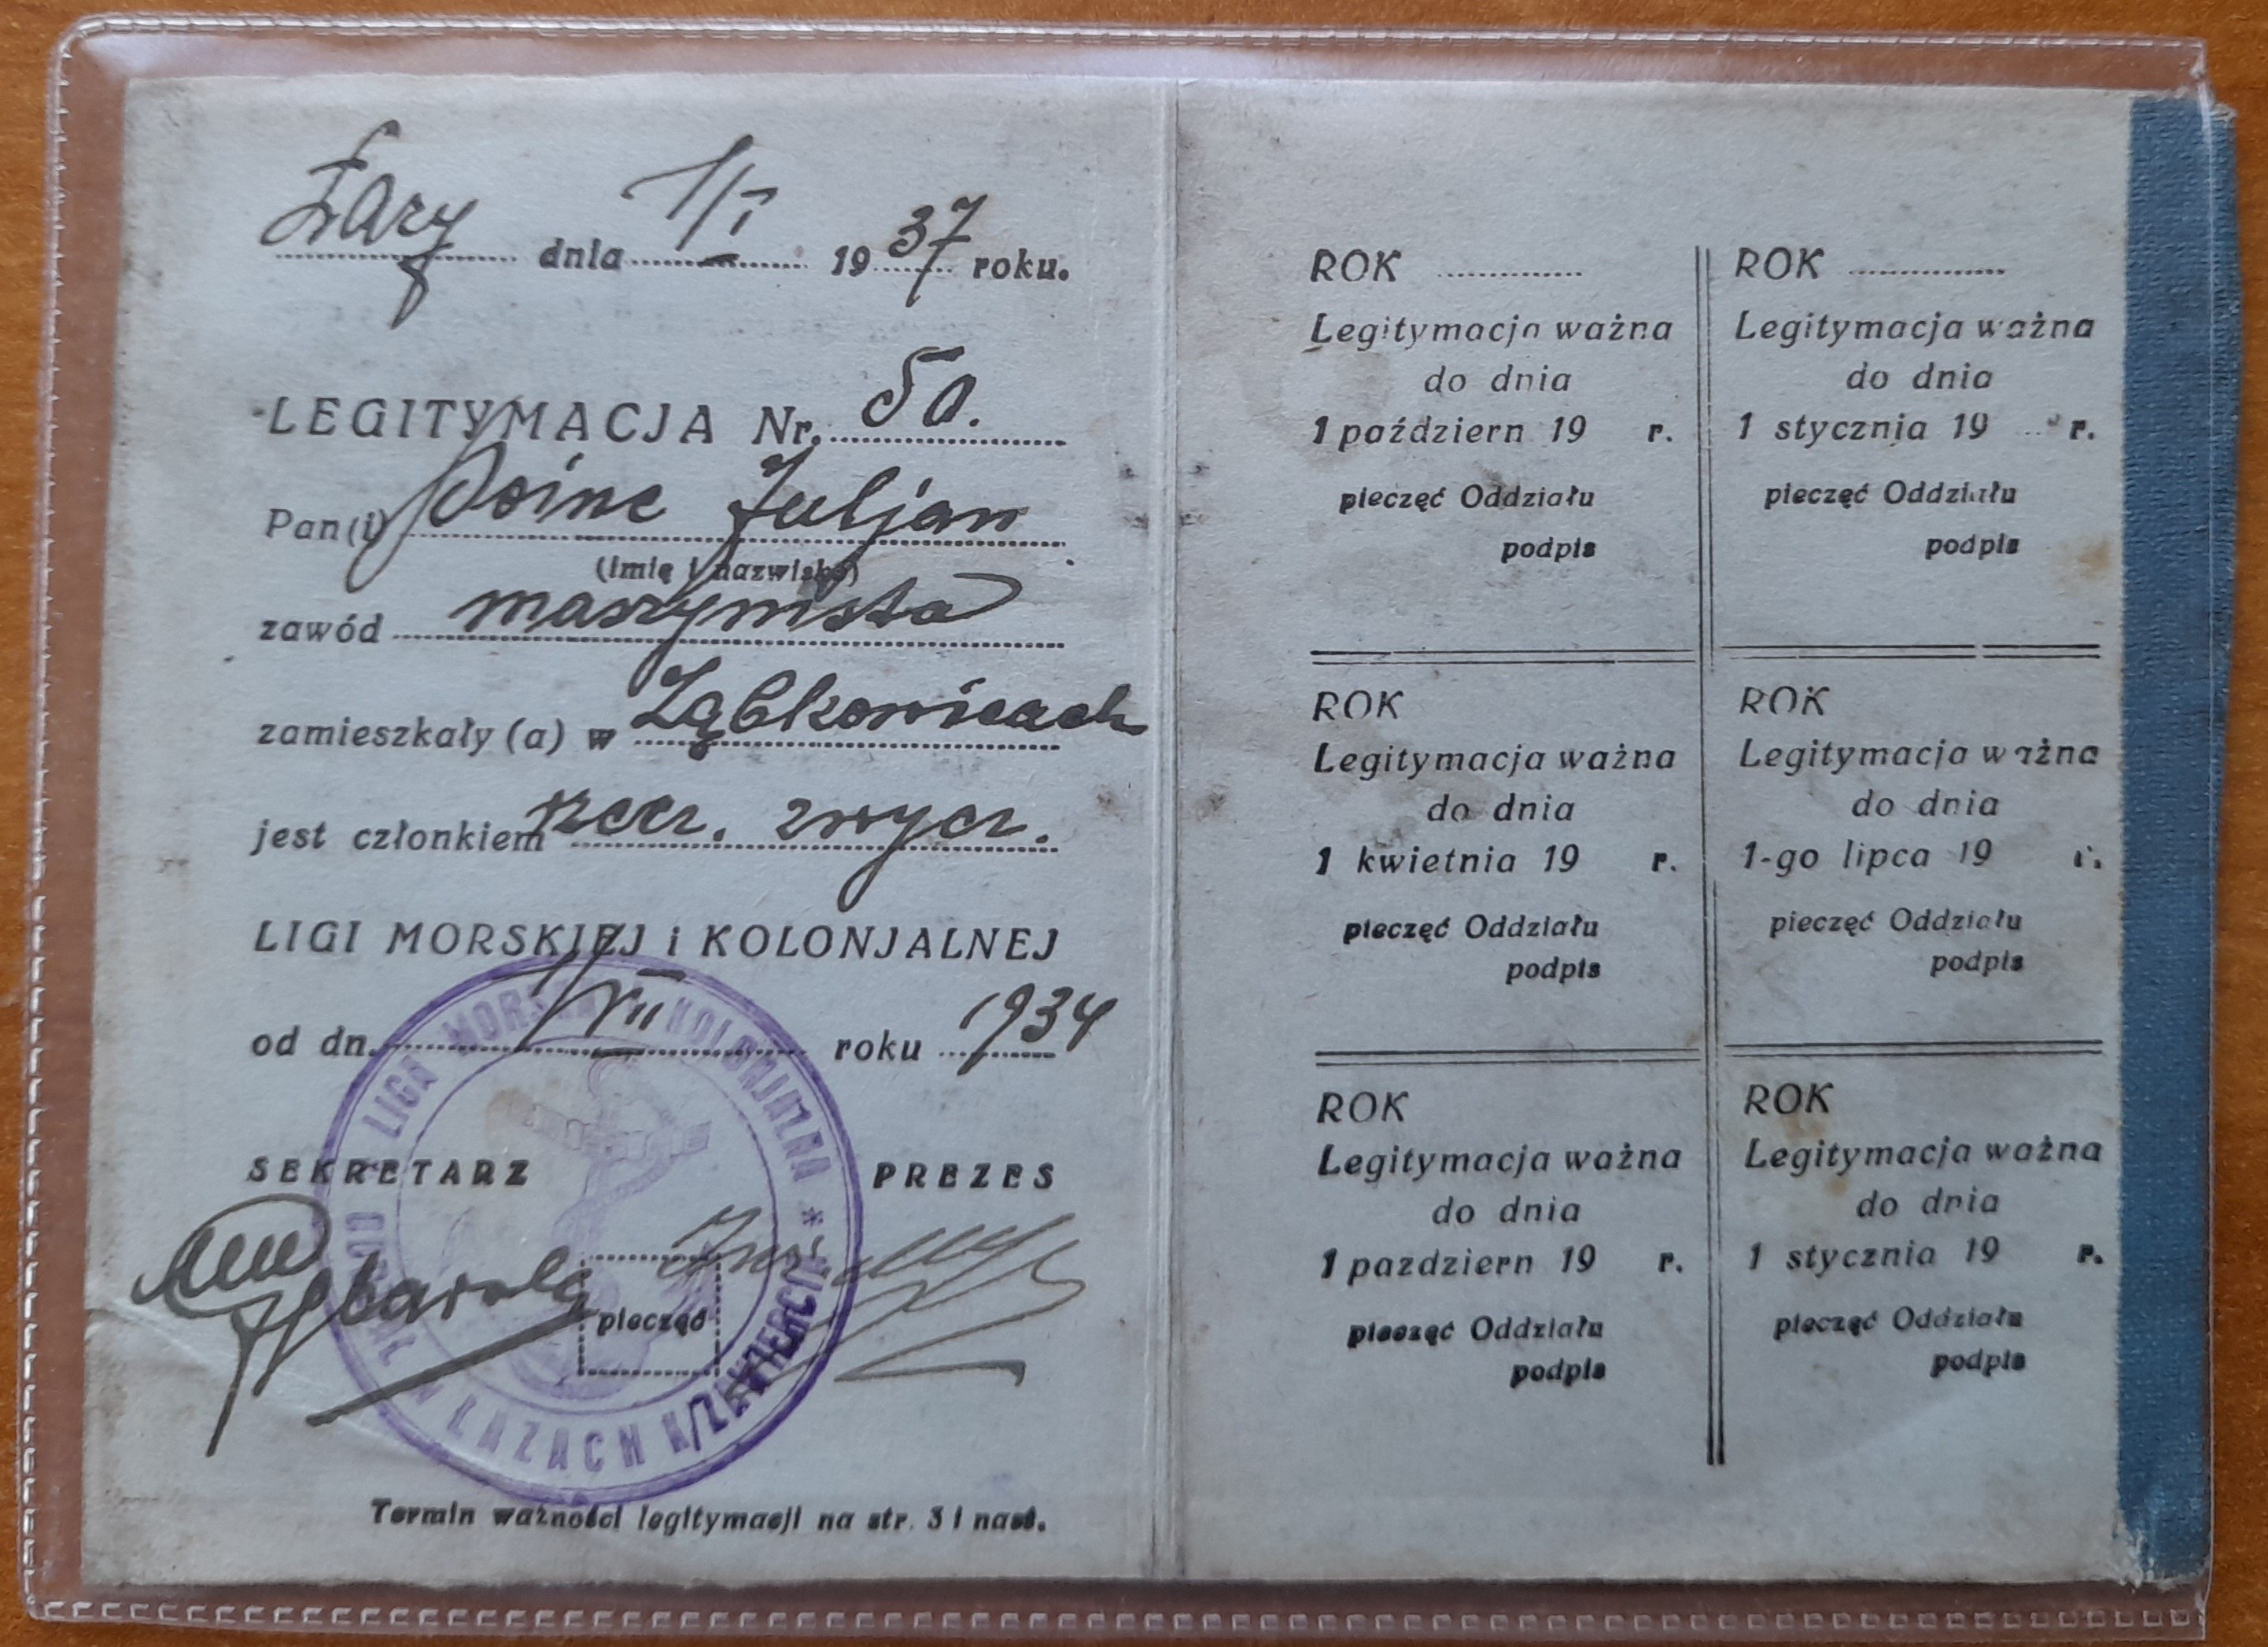 Łazy dnia 1/I 1937 roku.
LEGITYMACJA Nr. 50.
Pan(i) Juljan
(imię i nazwisko)
zawód maszynista
zamieszkały (a) w Ząbkowicach
jest członkiem rzecz. zwycz.
LIGI MORSKIEJ i KOLONJALNEJ
od dn. 1/VII roku 1934
SEKRETARZ PREZES
pieczęć
LIGA MORSKA KOLONJALNA * ODDZIAŁ W ŁAZACH K/ZAWIERCIA
Termin ważności legitymacji na str. 3 i nast.
ROK
Legitymacja ważna
do dnia
1 październ 19 r.
pieczęć Oddziału
podpis
ROK
Legitymacja ważna
do dnia
1 stycznia 19 r.
pieczęć Oddziału
podpis
ROK
Legitymacja ważna
do dnia
1 kwietnia 19 r.
pieczęć Oddziału
podpis
ROK
Legitymacja ważna
do dnia
1-go lipca 19 r.
pieczęć Oddziału
podpis
ROK
Legitymacja ważna
do dnia
1 pazdziern 19 r.
pieczęć Oddziału
podpis
ROK
Legitymacja ważna
do dnia
1 stycznia 19 r.
pieczęć Oddziału
podpis